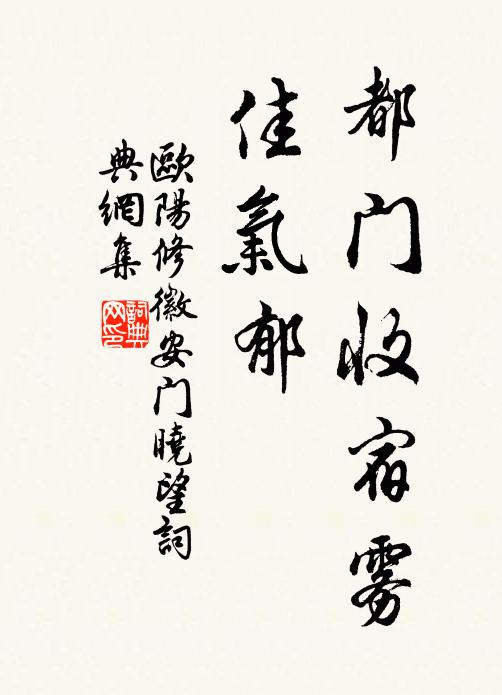 都门收宿雾
佳氣郁
歐陽修徽安门曉望詞
典網集
詞典
网印